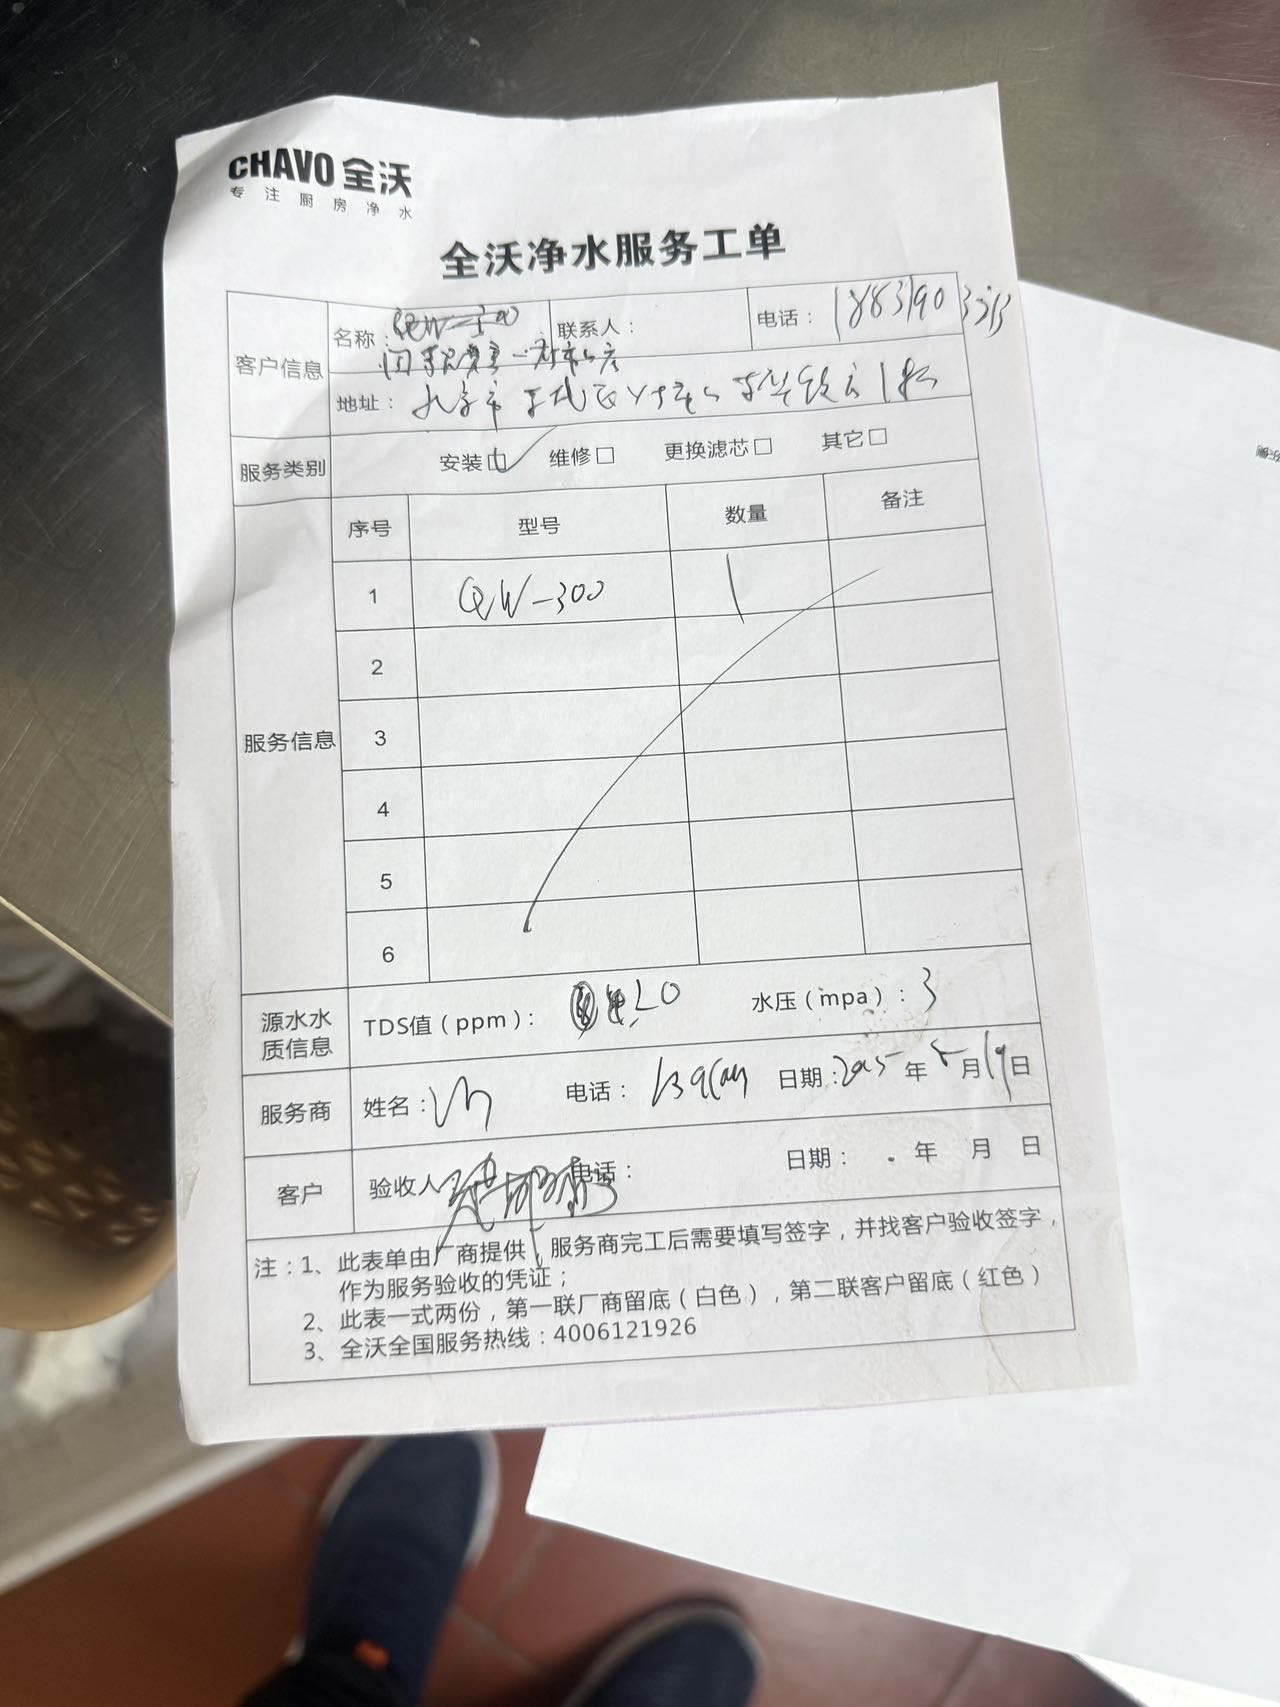 CHAVO 全沃
专注厨房净水
全沃净水服务工单
客户信息
名称：
联系人：
电话：
地址：
服务类别
安装☑ 维修□ 更换滤芯□ 其它□
服务信息
序号 型号 数量 备注
1 QW-300 1
2
3
4
5
6
源水水质信息
TDS值（ppm）：
水压（mpa）：3
服务商
姓名：
电话：
日期：2025年5月19日
客户
验收人
电话：
日期： 年 月 日
注：1、此表单由厂商提供，服务商完工后需要填写签字，并找客户验收签字，
作为服务验收的凭证；
2、此表一式两份，第一联厂商留底（白色），第二联客户留底（红色）
3、全沃全国服务热线：4006121926